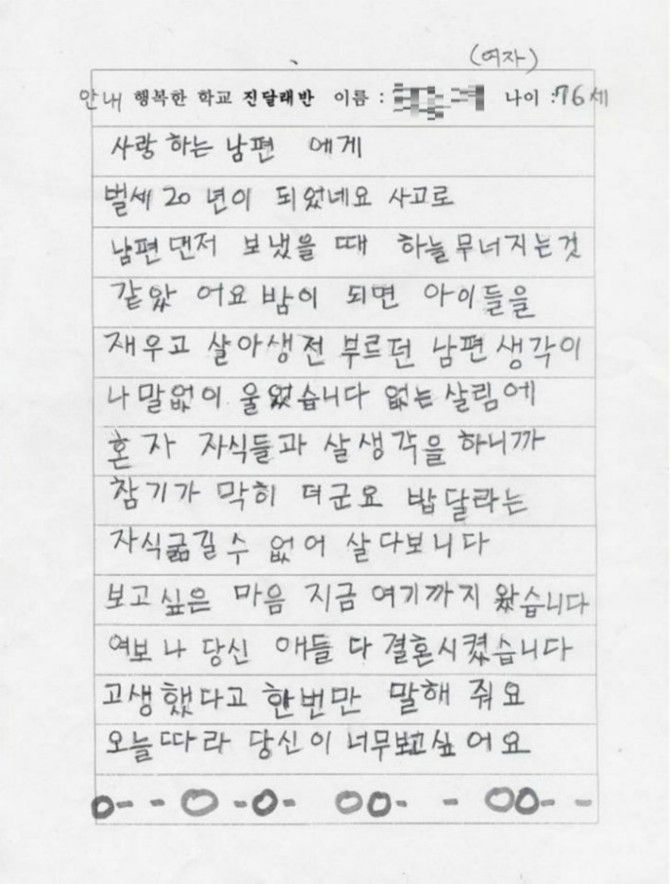 (여자)
안내 행복한 학교 진달래반 이름 : 나이 : 76 세
사랑 하는 남편 에게
벌세 20 년이 되었네요 사고로
남편 댄저 보냈을 때 하늘무너지는것
같았 어요 밤이 되면 아이들을
재우고 살아생전 부르던 남편 생각이
나 말없이 울었습니다 없는 살림에
혼자 자식들과 살생각을 하니까
참 기가 막히 더군요 밥달라는
자식굶길수 없어 살다보니다
보고싶은 마음 지금 여기까지 왔습니다
여보 나 당신 애들 다 결혼시켰습니다
고생했다고 한번만 말해 줘요
오늘따라 당신이 너무보고싶어요